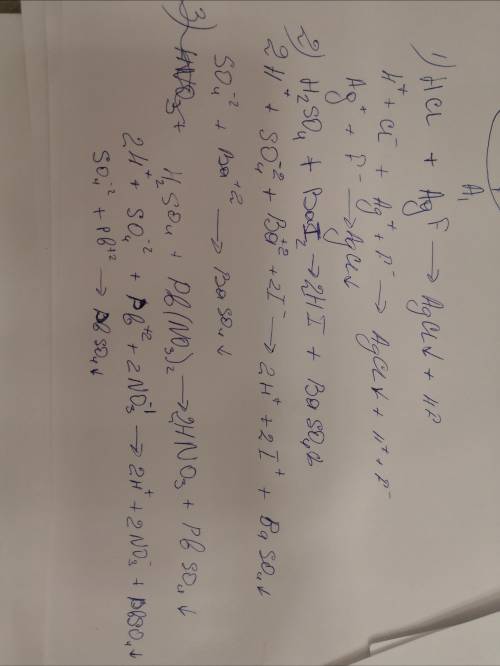 A₁
1) HCl + AgF → AgCl↓ + HF
H⁺ + Cl⁻ + Ag⁺ + F⁻ → AgCl↓ + H⁺ + F⁻
Ag⁺ + F⁻ → AgCl↓
2) H₂SO₄ + BaI₂ → 2HI + BaSO₄↓
2H⁺ + SO₄⁻² + Ba⁺² + 2I⁻ → 2H⁺ + 2I⁺ + BaSO₄↓
SO₄⁻² + Ba⁺² → BaSO₄↓
3) H₂SO₄ + Pb(NO₃)₂ → 2HNO₃ + PbSO₄↓
2H⁺ + SO₄⁻² + Pb⁺² + 2NO₃⁻¹ → 2H⁺ + 2NO₃⁻ + PbSO₄↓
SO₄⁻² + Pb⁺² → PbSO₄↓